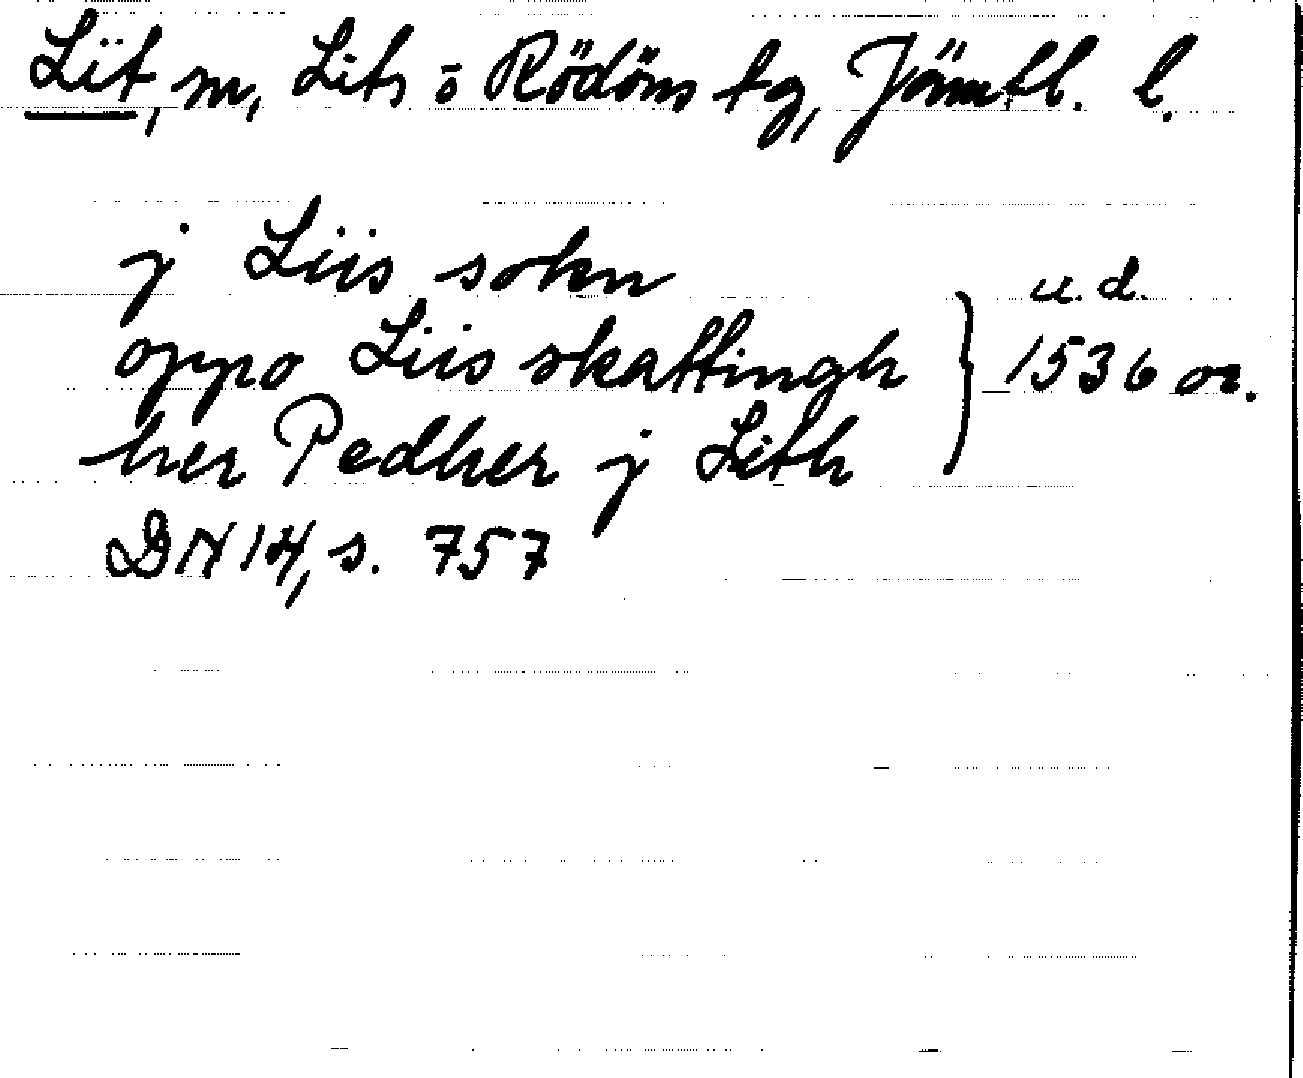 Lit, sn, Lits o Rödöns tg, Jämtl. l.
j Liis sokn
oppo Liis skattingh } u.d. 1536 or.
her Pedher j Lith
DN 14, s. 757